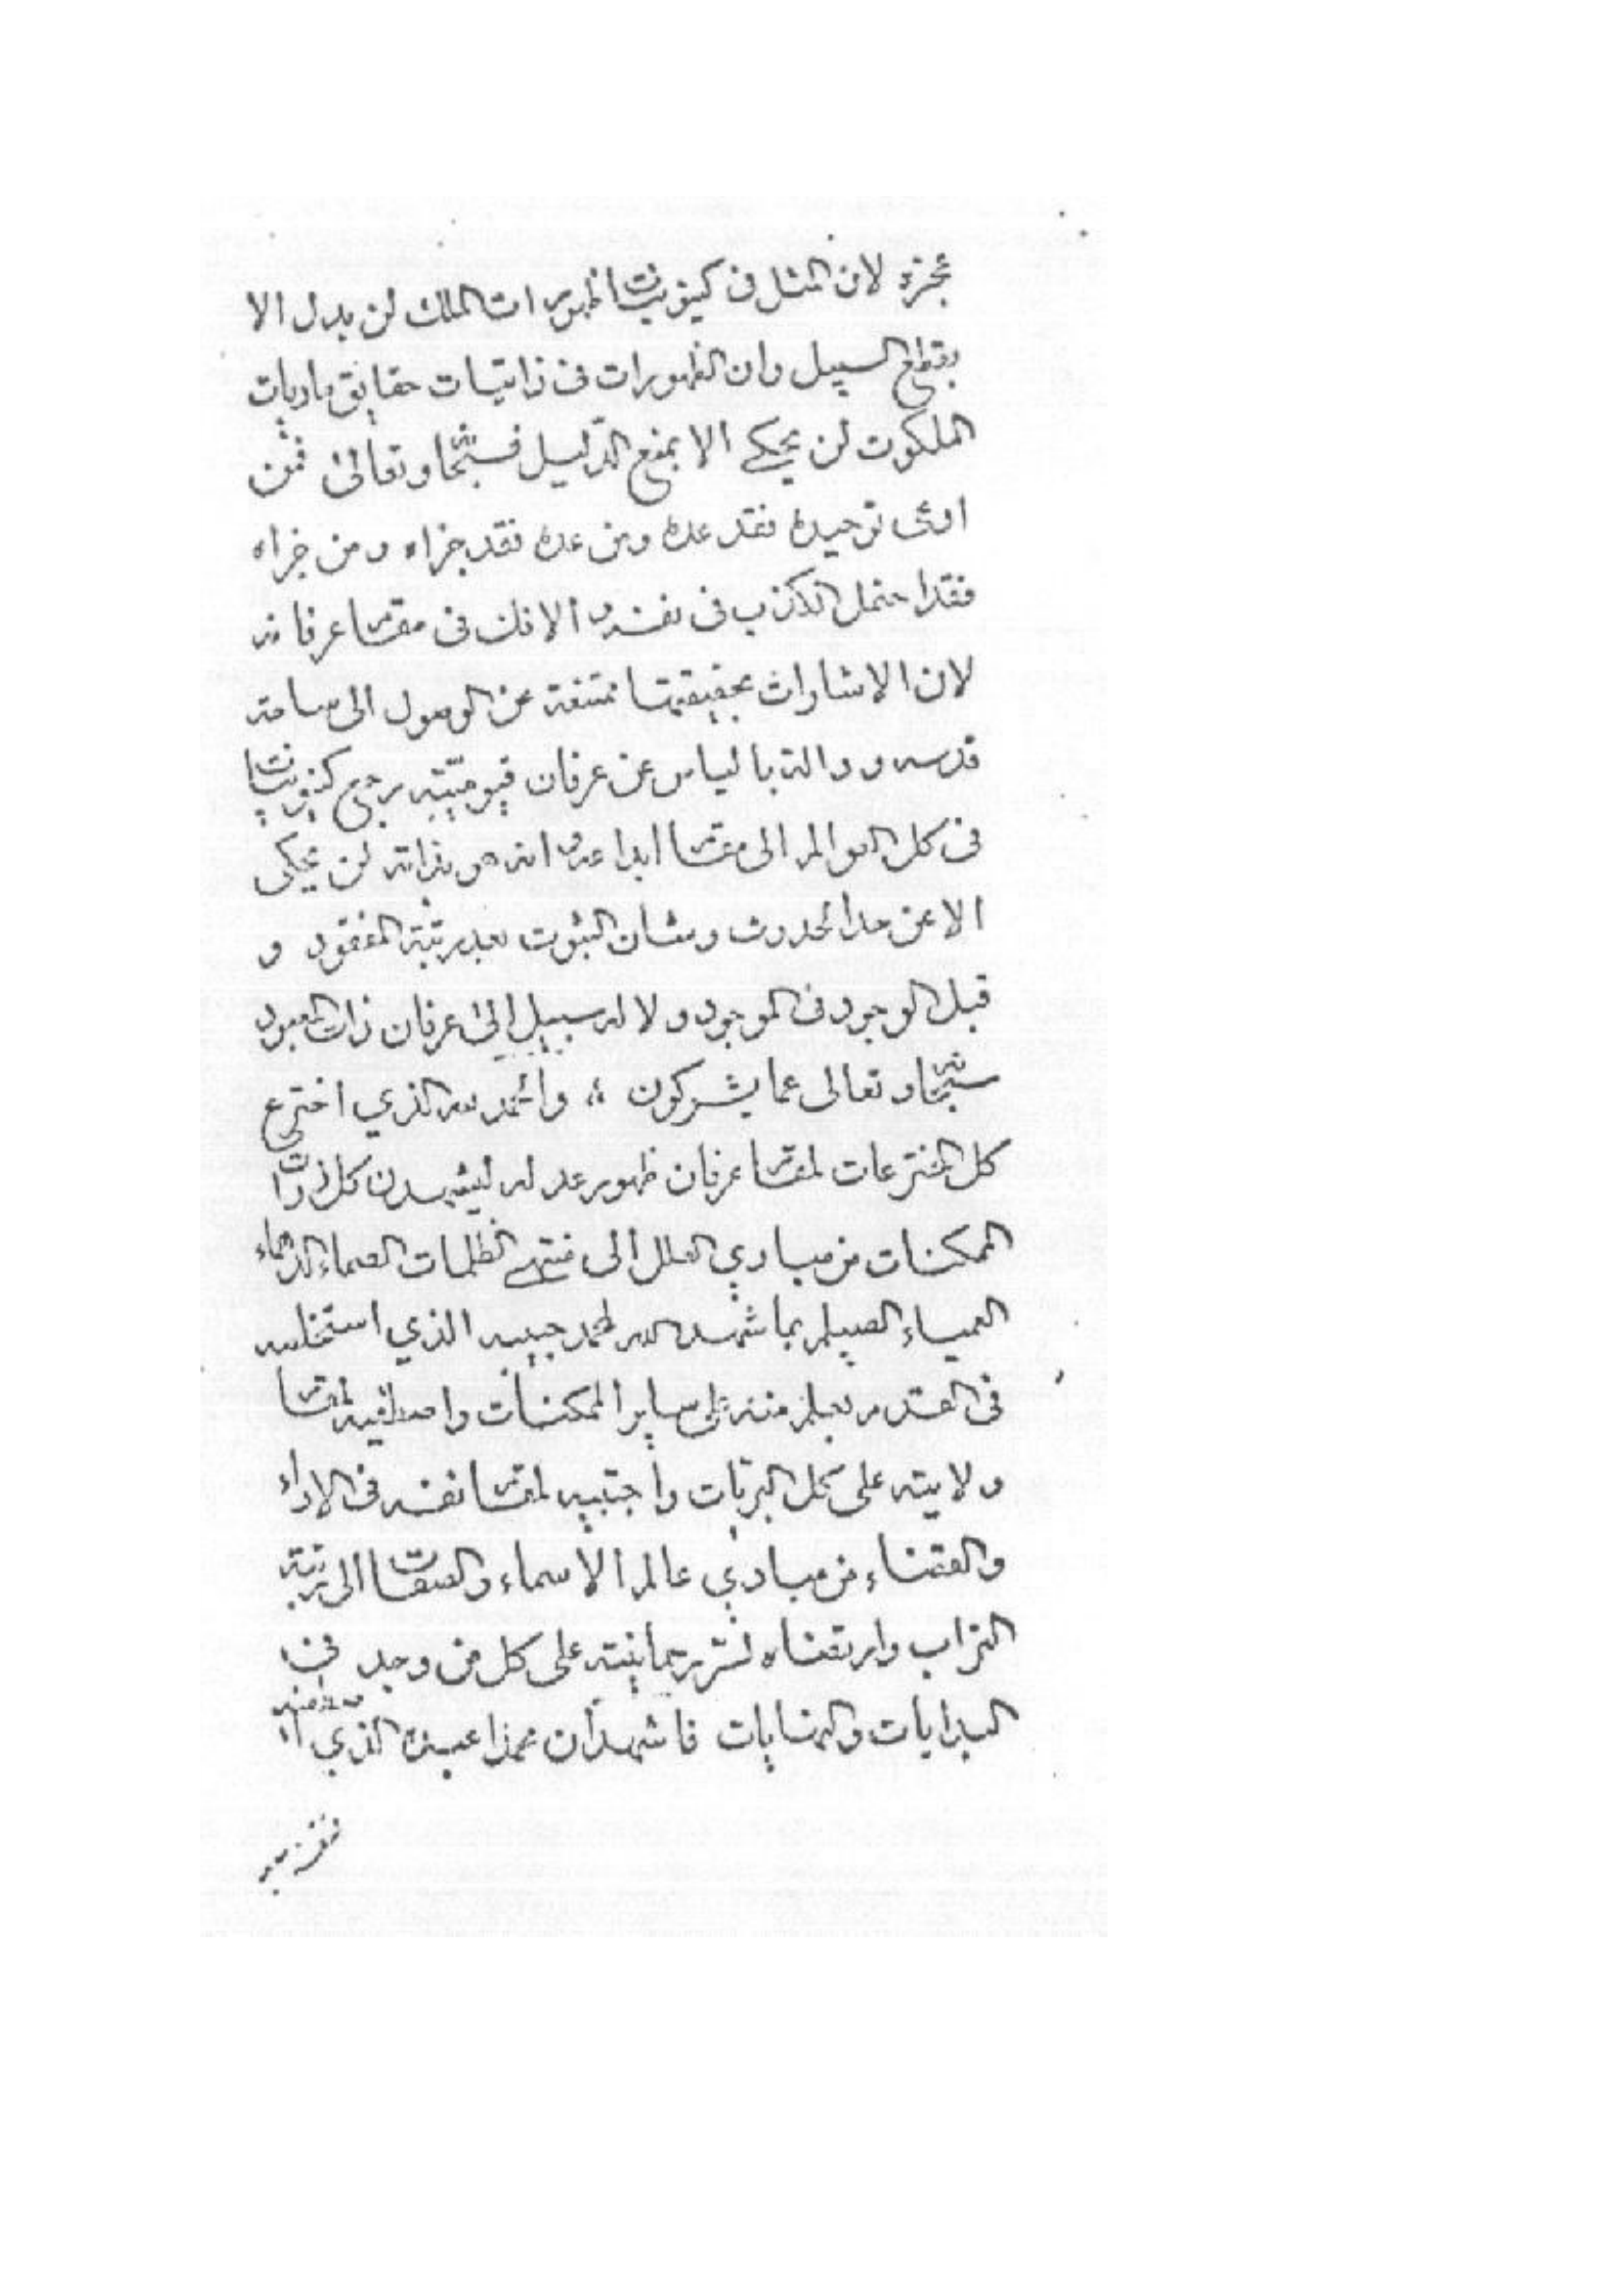 عجزه لان المثل فى كينونيات ظهورات الملك لن يدل الا
بقطع السبيل وان الظهورات فى ذاتيات حقايق ماديات
الملكوت لن يحكى الا بمنع الدليل فسبحانه وتعالى فمن
ادعى توحيده فقد عده ومن عده فقد جزاه ومن جزاه
فقد احتمل الكذب فى نفسه و الافك فى مقام عرفانه
لان الاشارات بحقيقتها ممتنعة عن الوصول الى ساحة
قدسه و دالة بالياس عن عرفان قيوميته يرجع كينونيات
فى كل العوالم الى مقام ابداعه و انه هو بذاته لن يحكى
الا عن حد الحدوث وشان الثبوت بعد رتبة المفقود و
قبل الوجود فى الموجود ولا له سبيل الى عرفان ذات المعبود
سبحانه وتعالى عما يشركون ؛ والحمد لله الذي اخترع
كل المخترعات لمقام عرفان ظهور عدله ليشهدن كل ذرات
الممكنات من مبادي العلل الى منتهى الظلمات الصماء الدهماء
العمياء الصيلم بما شهد الله لمحمد حبيبه الذي استخلصه
فى القدم بعلم منه على ساير الممكنات واصطفيه لمقام
ولايته على كل البريات واجتبيه لمقام نفسه فى الاداء
والقضاء من مبادي عالم الاسماء والصفات الى رتبة
التراب وارتضاه لسر رحمانيته على كل من وجد فى
البدايات والنهايات فاشهد ان محمدا عبده الذي